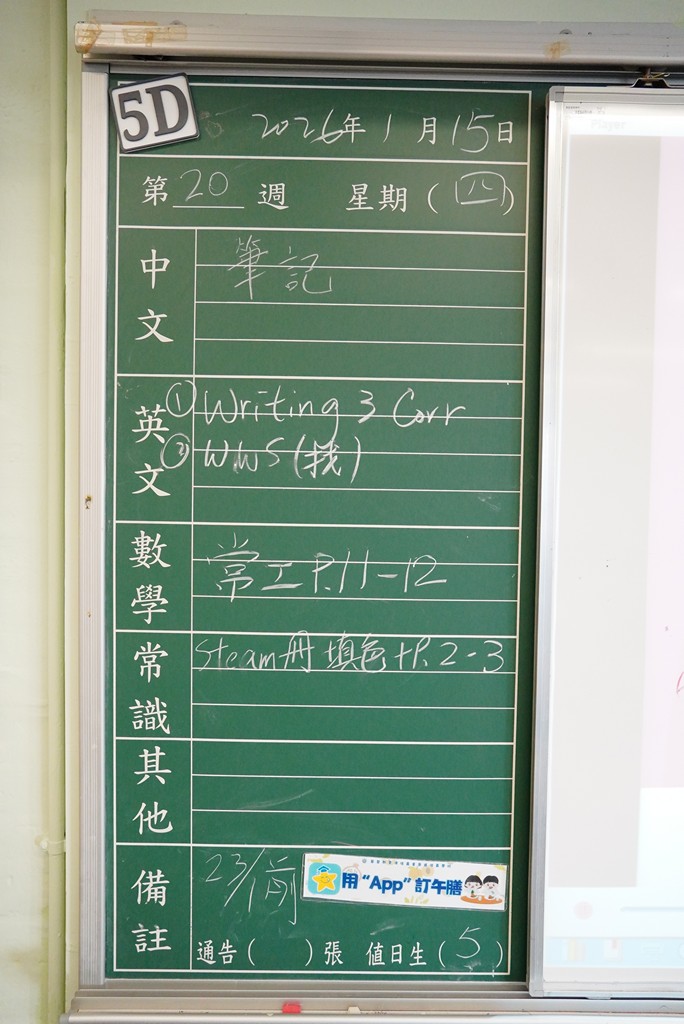 5D
2026年1月15日
第20週 星期(四)
中文
筆記
英文
① Writing 3 Corr
② WWS(找)
數學
常工P.11-12
常識
Steam冊 填色+P.2-3
其他
備註
23/1前
用“App”訂午膳
通告( )張 值日生(5)